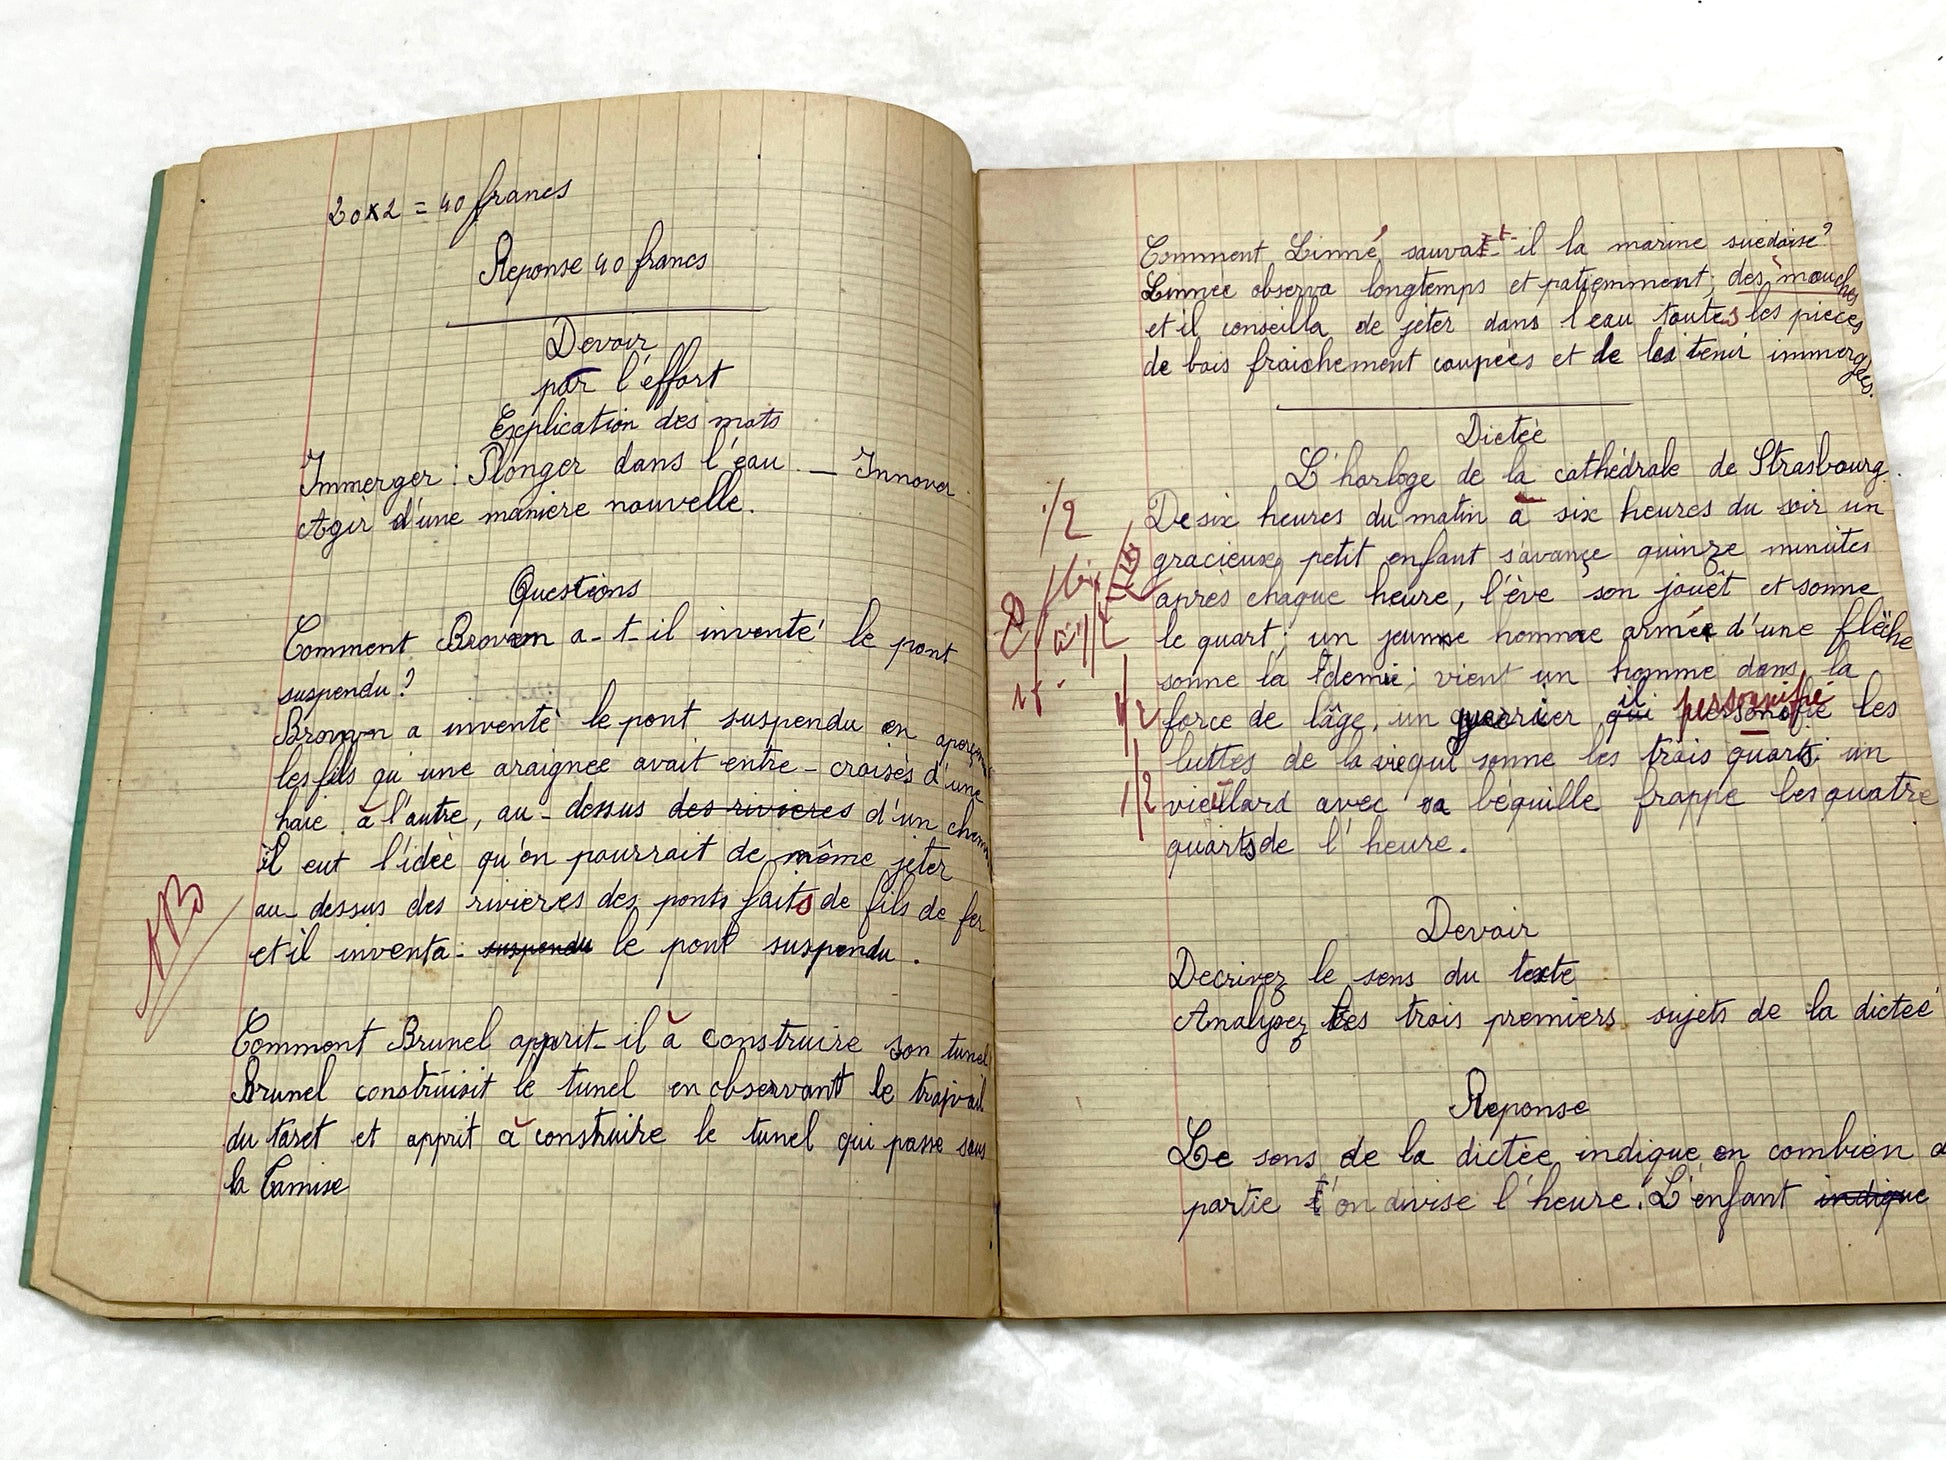 20x2 = 40 francs
Reponse 40 francs
Devoir
par l'effort
Explication des mots
Immerger : Plonger dans l'eau. — Innover.
Agir d'une manière nouvelle.
Questions
Comment Brown a-t-il inventé le pont
suspendu ?
Brown a inventé le pont suspendu en
les fils qu'une araignée avait entre-croisés d'une
haie à l'autre, au-dessus des rivieres d'un
il eut l'idée qu'on pourrait de même jeter
au-dessus des rivieres des ponts faits de fils de fer
et il inventa suspendu le pont suspendu.
TB
Comment Brunel apprit-il à construire son tunel
Brunel construisit le tunel en observant le travail
du taret et apprit à construire le tunel qui passe sous
la Tamise
Comment Linné sauva-t-il la marine suedoise ?
Linnée observa longtemps et patiemment des mouches
et il conseilla de jeter dans l'eau toutes les pieces
de bois fraichement coupées et de les tenir immergées.
Dictée
L'horloge de la cathédrale de Strasbourg.
1/2
De six heures du matin à six heures du soir un
gracieux petit enfant s'avance quinze minutes
apres chaque heure, l'ève son jouet et sonne
le quart ; un jeune homme armé d'une flèche
sonne la demie ; vient un homme dans la
il personnifie
1/2
force de l'âge, un guerrier qui personofie les
luttes de la vie qui sonne les trois quarts ; un
1/2
vieillard avec sa béquille frappe les quatre
quarts de l'heure.
Devoir
Decrivez le sens du texte
Analysez les trois premiers sujets de la dictée
Reponse
Le sens de la dictée indique en combien
partie l'on divise l'heure. L'enfant indique